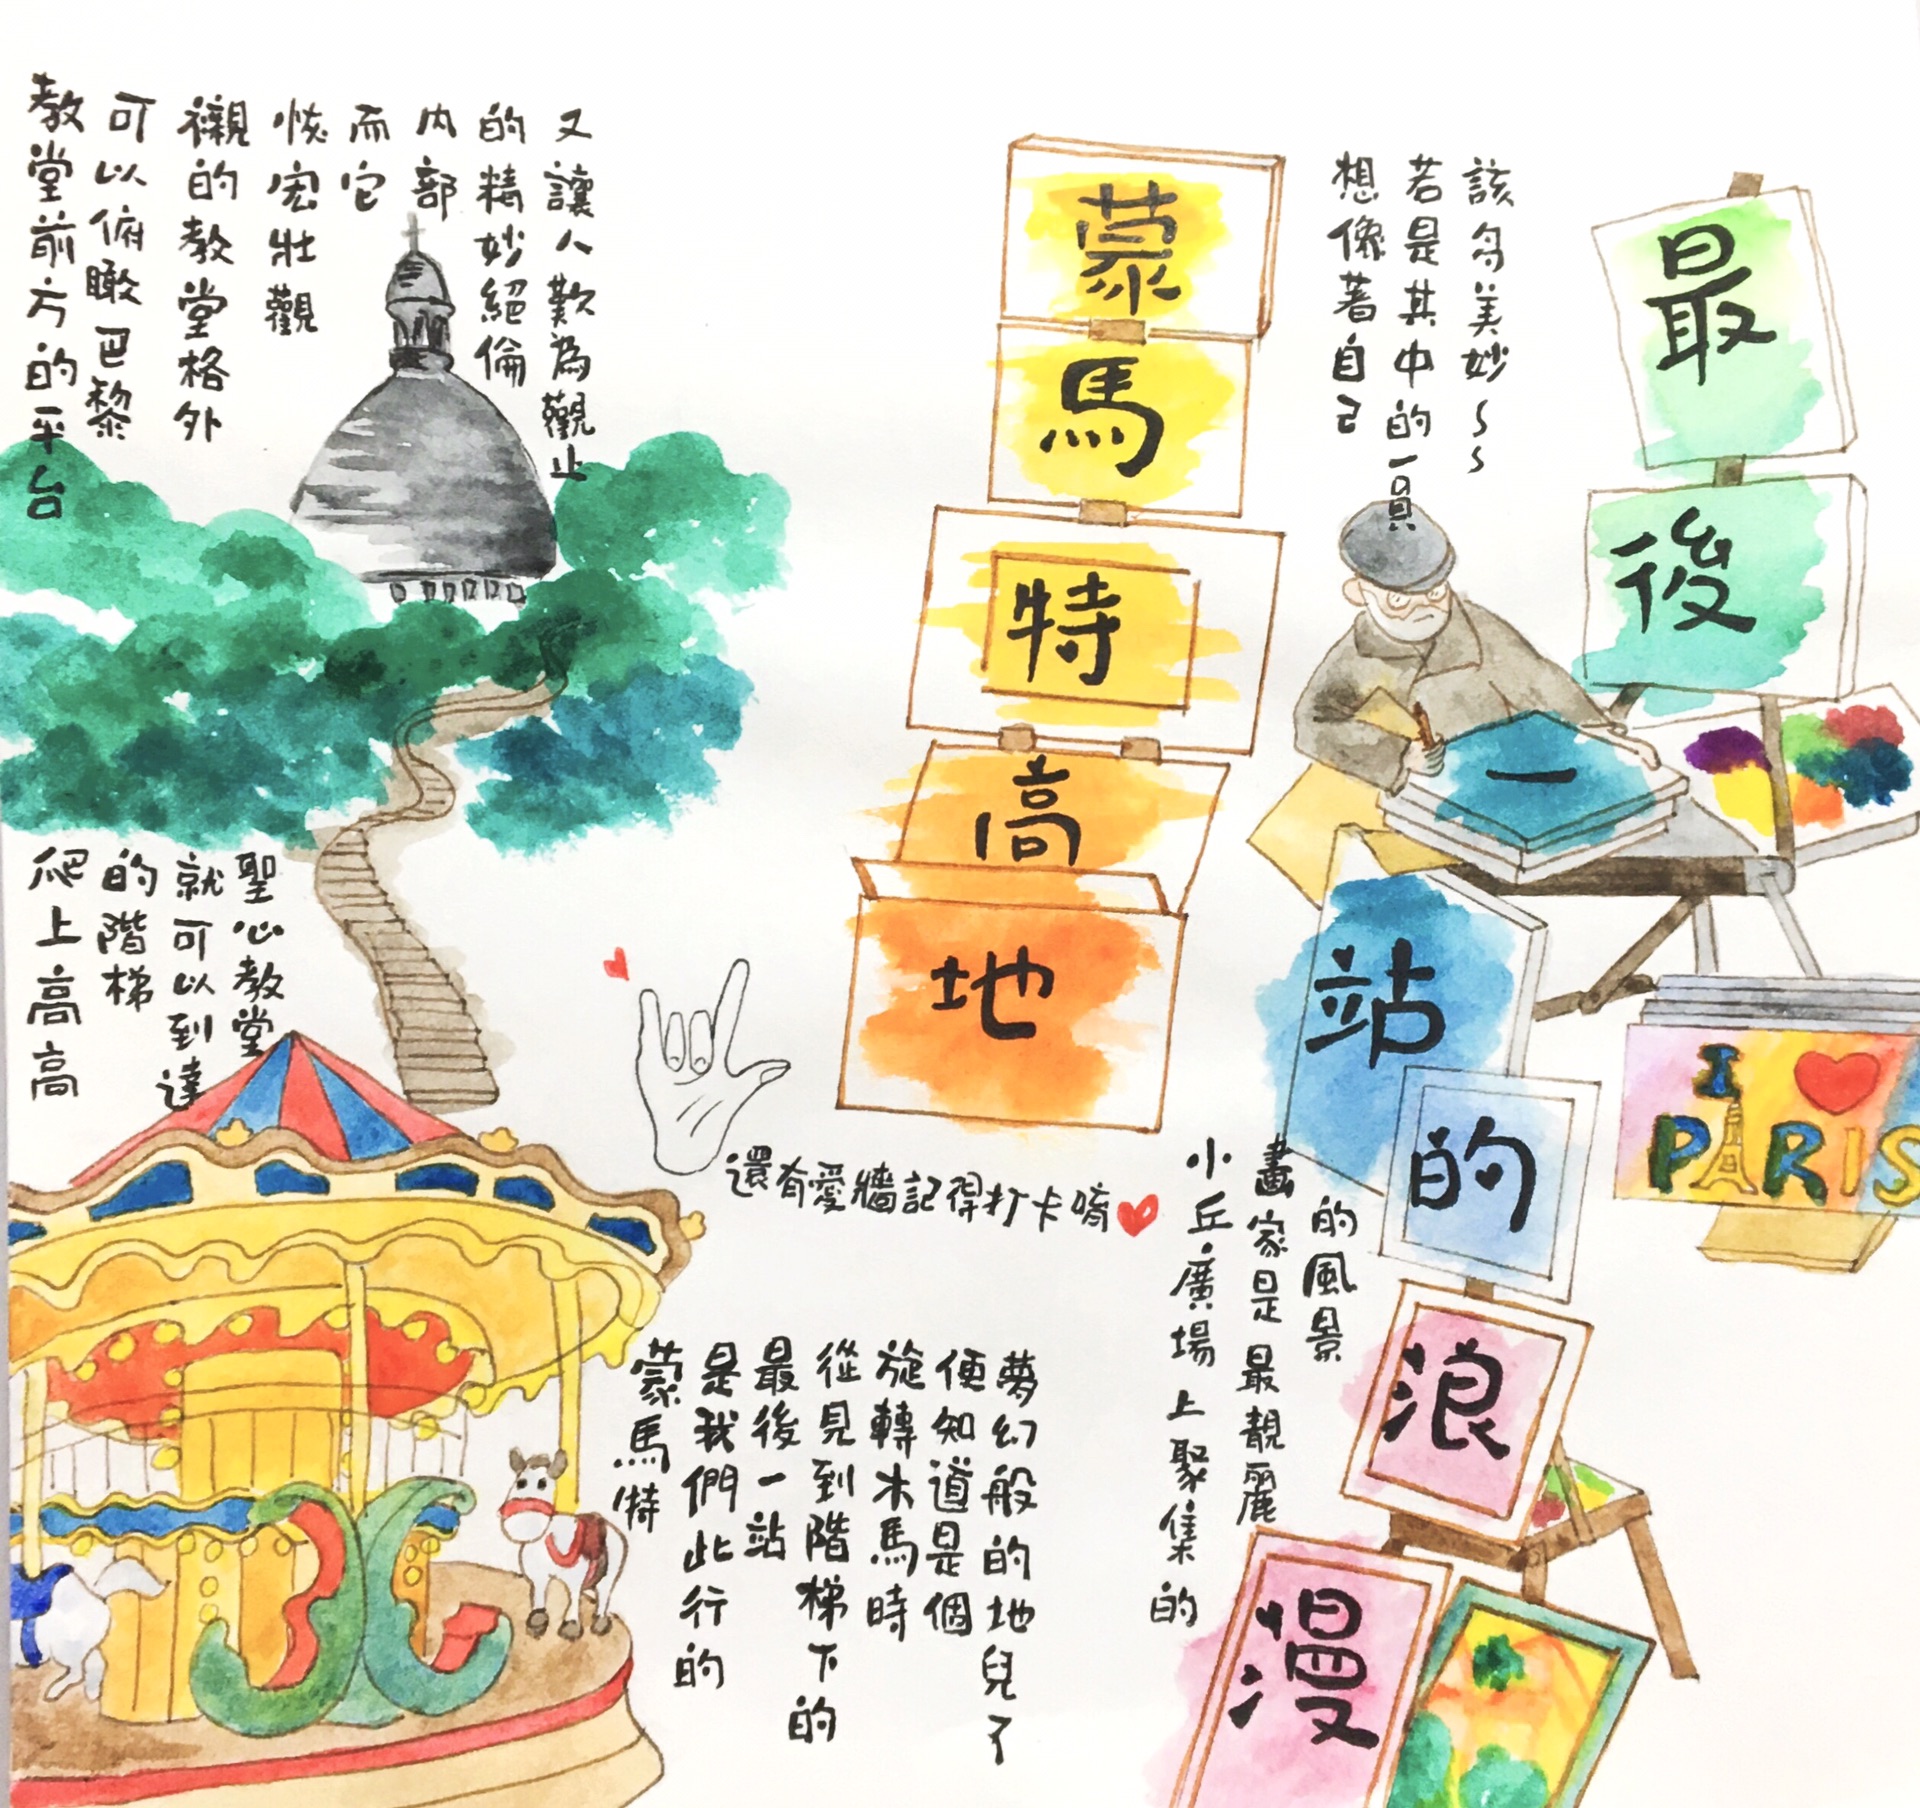 最後一站的浪漫
蒙馬特高地
蒙馬特
是我們此行的
最後一站
從見到階梯下的
旋轉木馬時
便知道是個
夢幻般的地兒了
爬上高高
的階梯
就可以到達
聖心教堂
教堂前方的平台
可以俯瞰巴黎
襯的教堂格外
恢宏壯觀
而它
內部
的精妙絕倫
又讓人歎為觀止
還有愛牆記得打卡唷
小丘廣場上聚集的
畫家是最靚麗
的風景
想像著自己
若是其中的一員
該多美妙~~
I ❤
PARIS